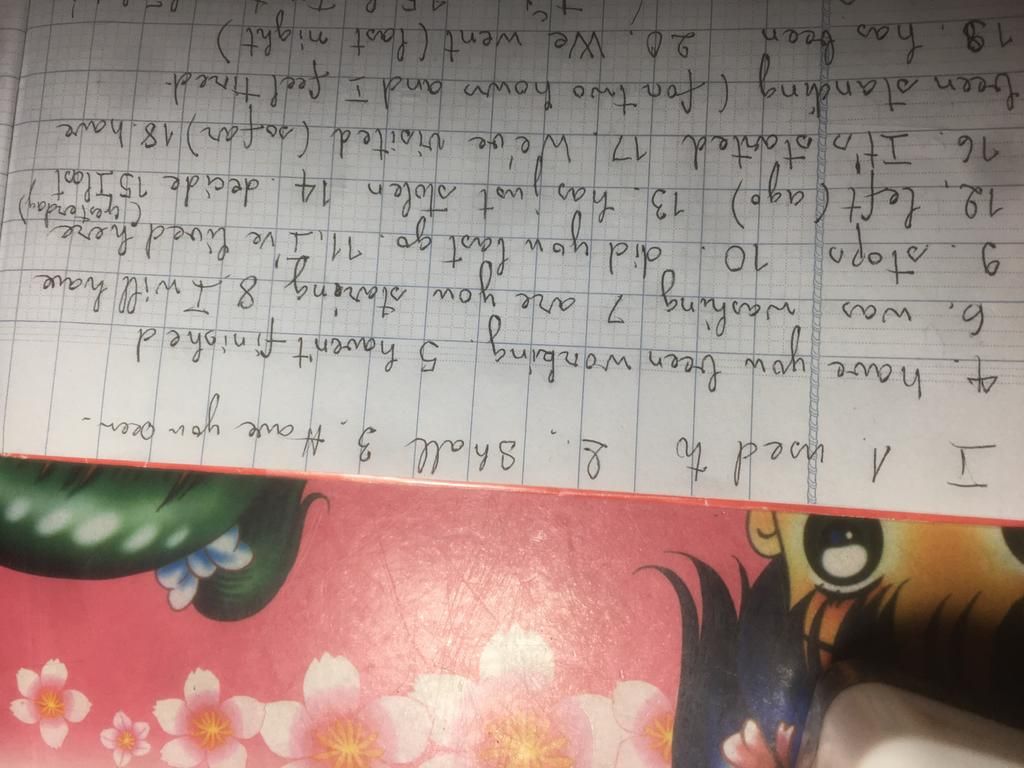 I 1 used to 2. Shall 3. Have you been
4. have you been working. 5 haven't finished
6. was washing 7 are you staring 8 I will have
9. stops 10. did you last go. 11. I've lived here
12. left (ago) 13. has just stolen 14. decide 15 I lost (yesterday)
16. It's started 17. We've visited (so far) 18. have
been standing (for two hours and I feel tired.
19. has been 20. We went (last night)